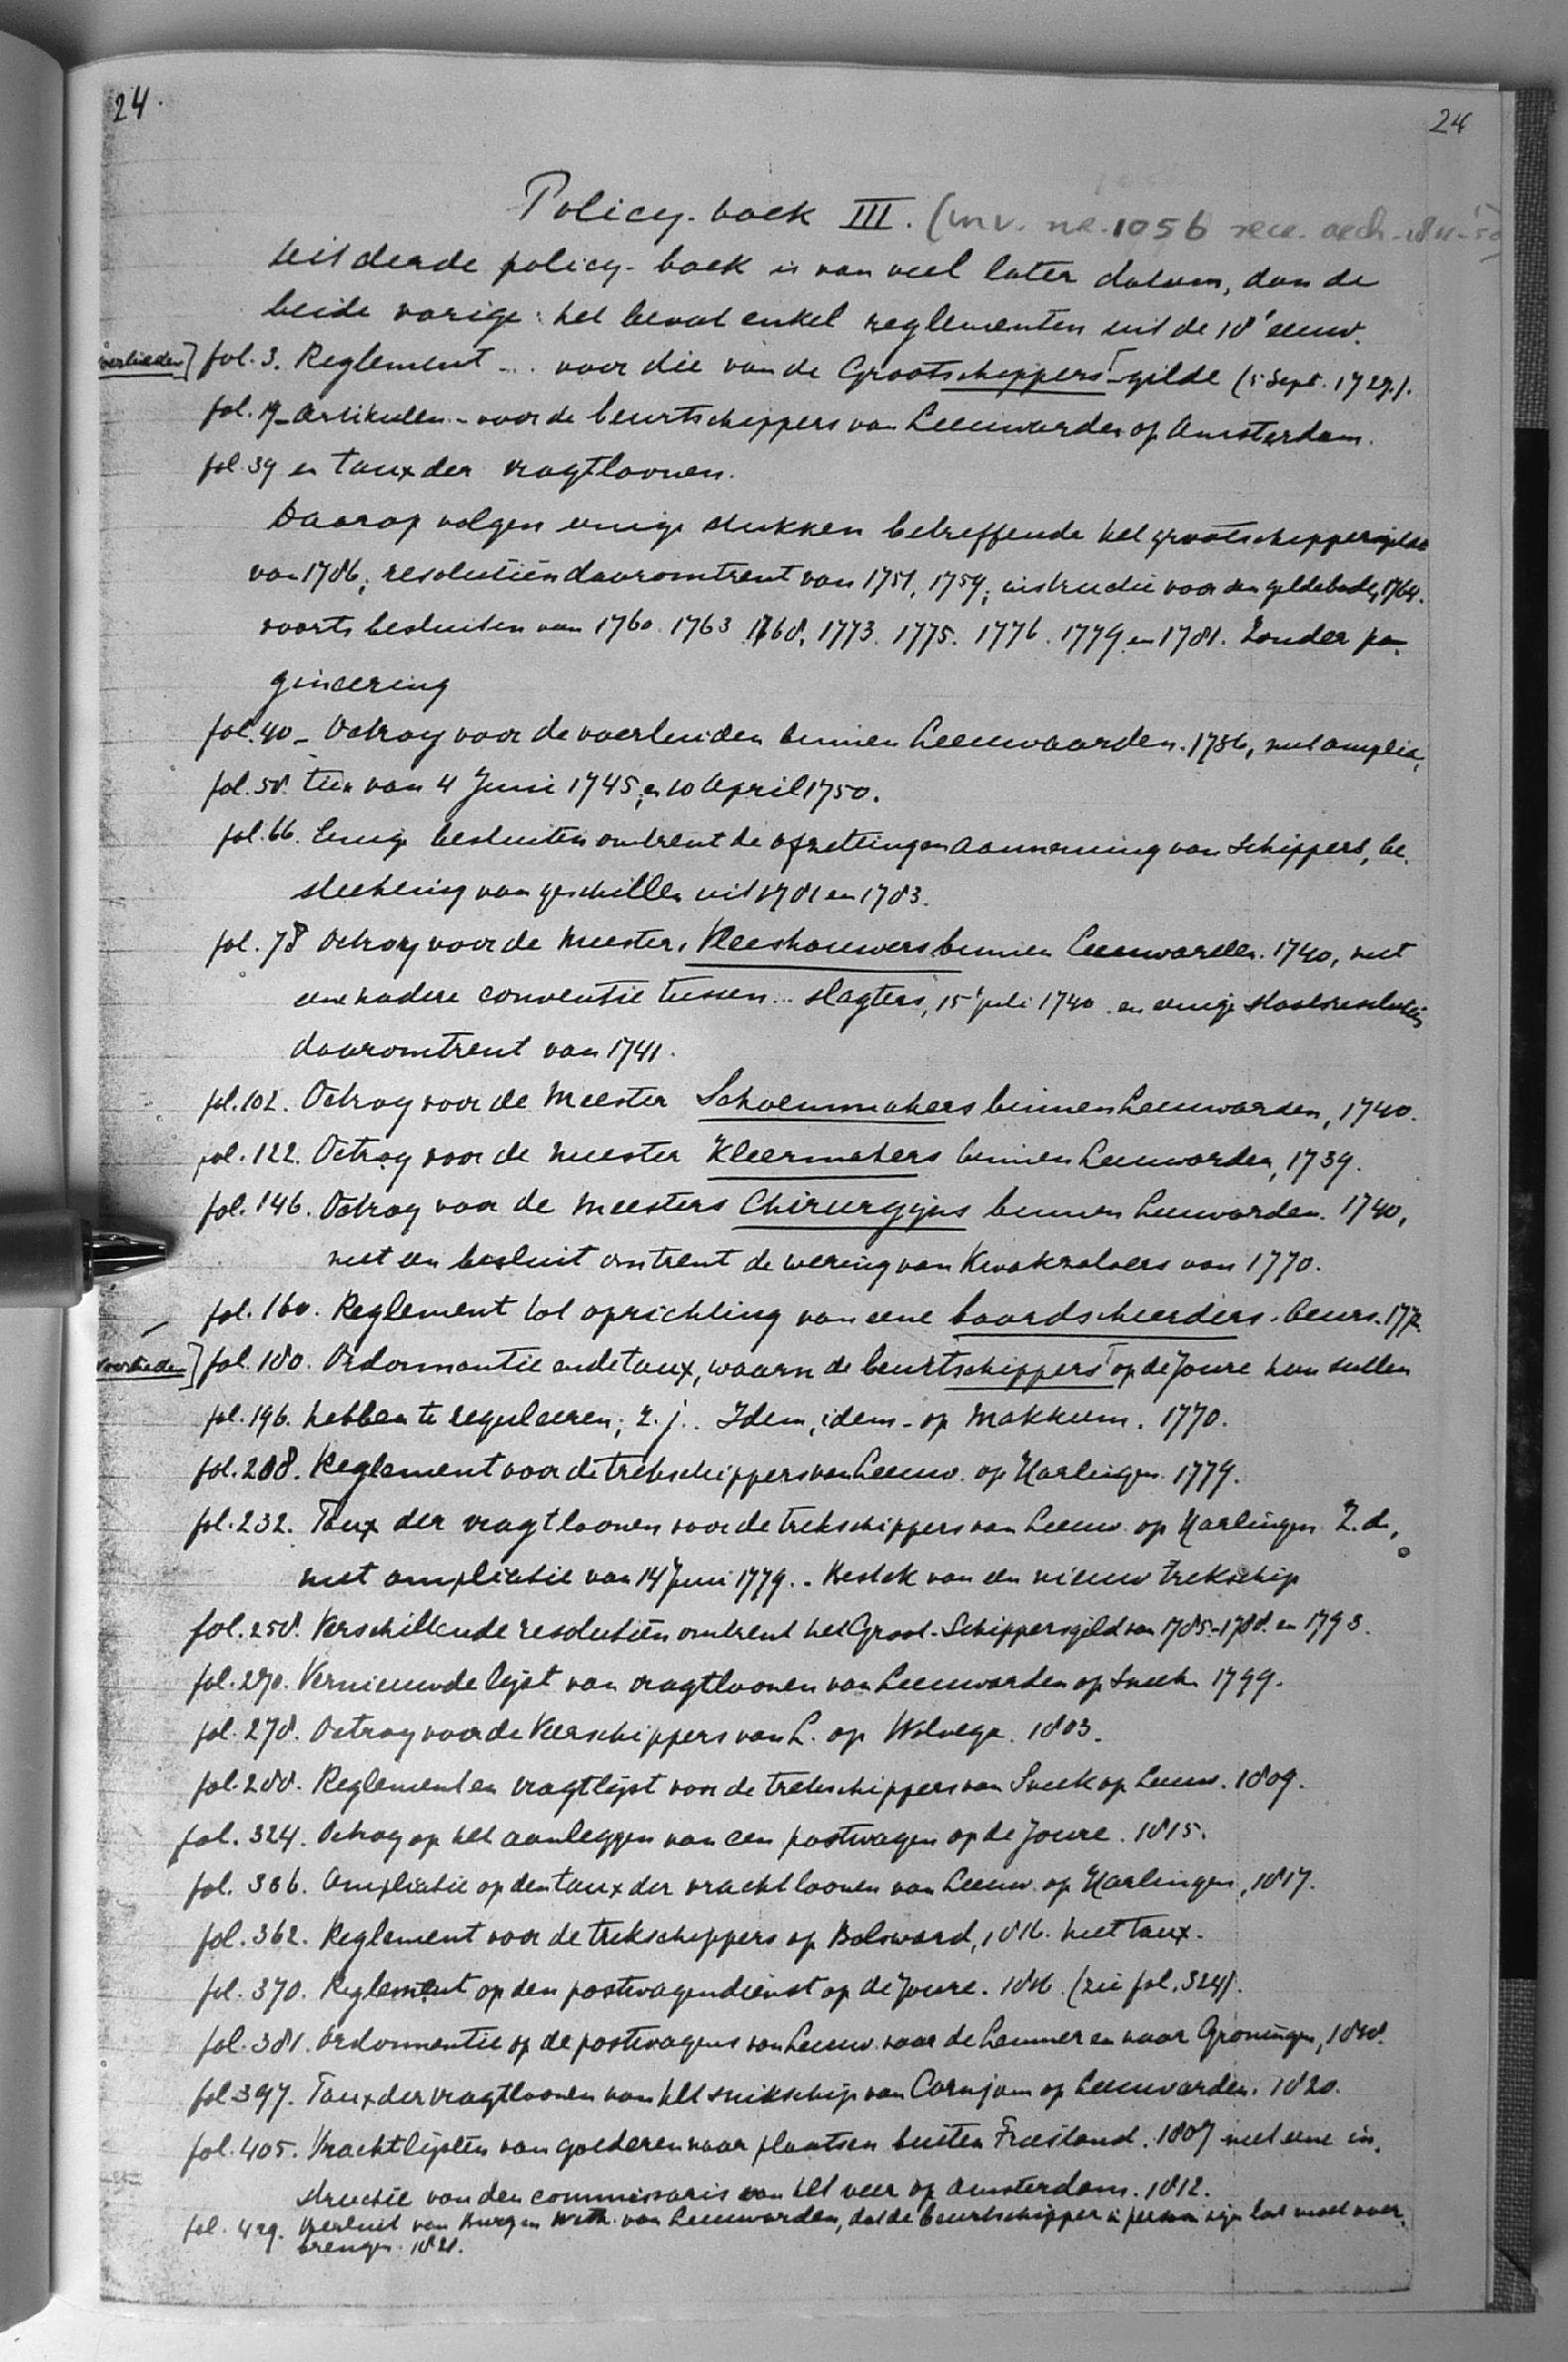 24.
24
Policy-boek III. (inv. nr. 1056 rece. arch.
Dit derde policy-boek is van veel later datum, dan de
beide vorige: het bevat enkel reglementen uit de 18e eeuw.
fol. 3. Reglement ... voor die van de Grootschippers-gilde (5 Sept. 1729).
fol. 19 - Artikulen - voor de beurtschippers van Leeuwarden op Amsterdam.
fol. 39 en taux der vragtloonen.
Daarop volgen eenige stukken betreffende het grootschippersgilde
van 1786; resolutiën daaromtrent van 1751, 1759; instructie voor den gildebode, 1764.
voorts besluiten van 1760. 1763 1768, 1773. 1775. 1776. 1779 en 1781. Zonder pa-
gineering
fol. 40 - Octroy voor de voerluiden binnen Leeuwaarden. 1736, met amplia-
fol. 58. tien van 4 Juni 1745, en 10 April 1750.
fol. 66. Eenige besluiten omtrent de afzetting en aanneming van Schippers, be-
slechting van geschillen uit 1781 en 1783.
fol. 78 Octroy voor de meesters Vleeshouwers binnen Leeuwarden. 1740, met
eene nadere conventie tussen ... slagters, 15 juli 1740 en eenige staatsresolutiën
daaromtrent van 1741.
fol. 102. Octroy voor de Meester Schoenmakers binnen Leeuwarden, 1740.
fol. 122. Octroy voor de meester Kleermakers binnen Leeuwarden, 1739.
fol. 146. Octroy voor de meesters Chirurgijns binnen Leeuwarden. 1740,
met een besluit omtrent de wering van Kwakzalvers van 1770.
fol. 160. Reglement tot oprichting van eene baardscheerders-beurs. 177
fol. 180. Ordonnantie ende taux, waarin de beurtschippers op de Joure hun sullen
fol. 196. hebben te reguleeren; z. j. Idem, idem - op Makkum. 1770.
fol. 208. Reglement voor de trekschippers van Leeuw. op Harlingen. 1779.
fol. 232. Taux der vragtloonen voor de trekschippers van Leeuw. op Harlingen Z. d.,
met ampliatie van 14 Juni 1779. - Bestek van een nieuw trekschip
fol. 258. Verschillende resolutiën omtrent het Groot-Schippersgild van 1785-1788 en 1793.
fol. 270. Vernieuwde lijst van vragtloonen van Leeuwarden op Sneek 1799.
fol. 278. Octroy voor de Veerschippers van L. op Wolvega. 1803.
fol. 288. Reglement en vragtlijst voor de trekschippers van Sneek op Leeuw. 1809.
fol. 324. Octroy op het aanleggen van een postwagen op de Joure. 1815.
fol. 336. Ampliatie op den taux der vrachtloonen van Leeuw. op Harlingen, 1817.
fol. 362. Reglement voor de trekschippers op Bolsward, 1816. met taux.
fol. 370. Reglement op den postwagendienst op de Joure. 1816 (zie fol. 324).
fol. 381. Ordonnantie op de postwagens van Leeuw. naar de Lemmer en naar Groningen,
fol. 397. Taux der vragtloonen van het snikschip van Cornjum op Leeuwarden. 1820.
fol. 405. Vrachtlijsten van goederen naar plaatsen buiten Friesland. 1807 met eene in-
structie van den commissaris van het veer op Amsterdam. 1812.
fol. 429. Besluit van Burg en Weth. van Leeuwarden, dat de beurtschipper in persoon zijn last moet over-
brengen. 1821.